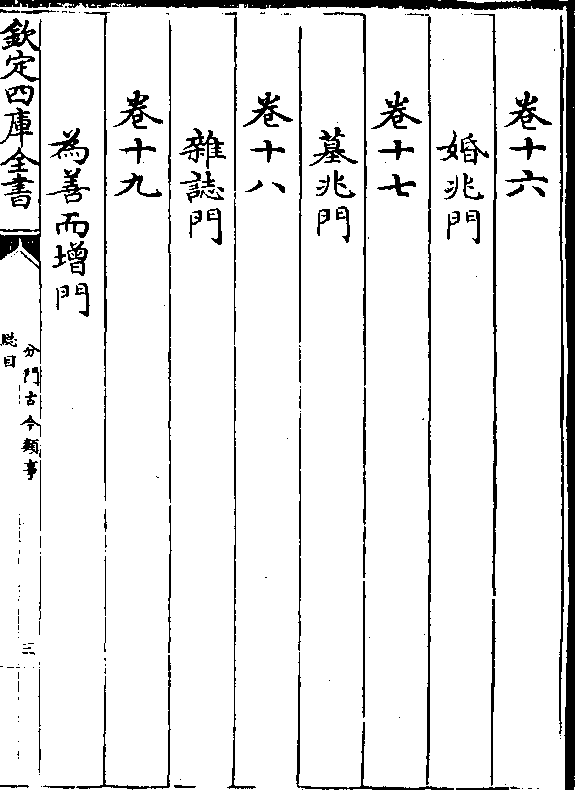 卷十六
婚兆門
卷十七
墓兆門
卷十八
雜誌門
卷十九
為善而增門
欽定四庫全書
分門古今類事
總目
三